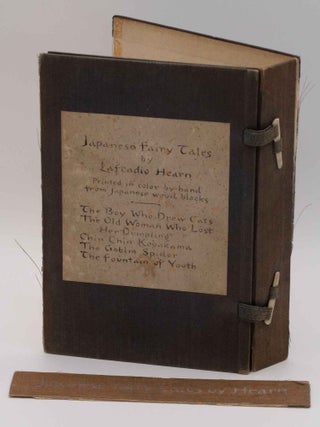 Japanese Fairy Tales
by
Lafcadio Hearn
Printed in color by hand
from Japanese wood blocks
The Boy Who Drew Cats
The Old Woman Who Lost
Her Dumpling
Chin Chin Kobakama
The Goblin Spider
The Fountain of Youth
Japanese Fairy Tales by Hearn